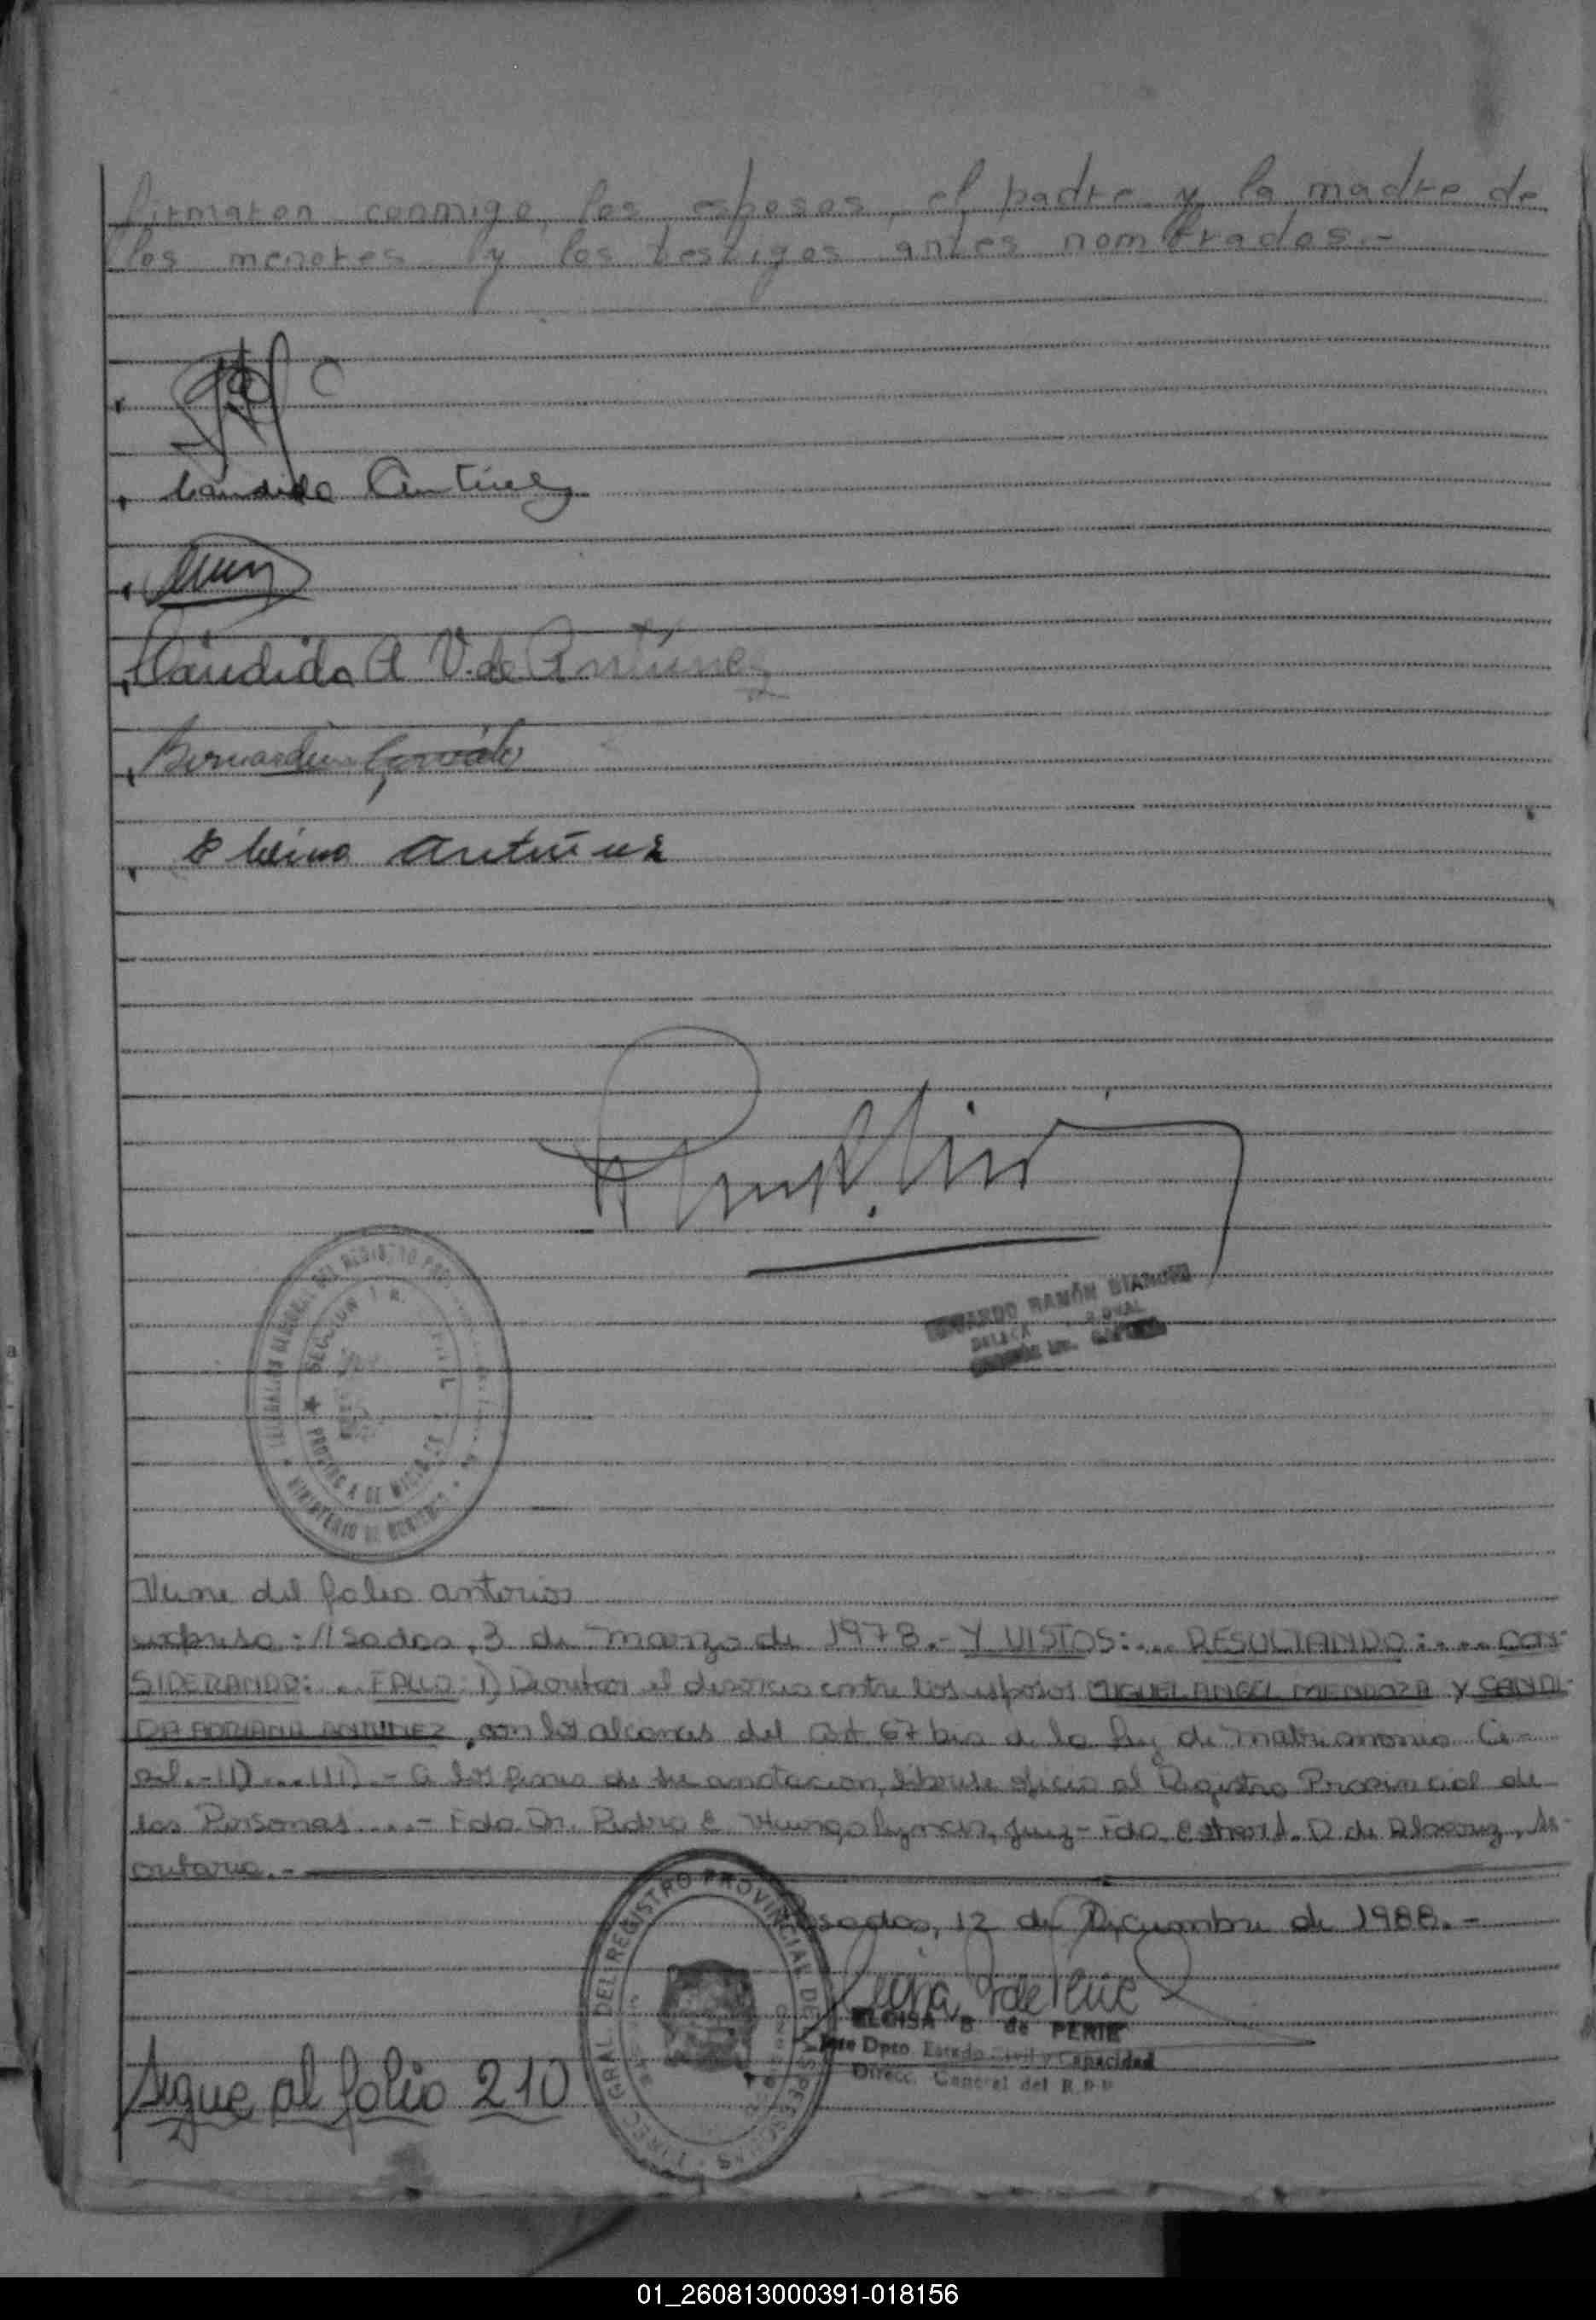 firmaron conmigo, los esposos, el padre y la madre de
los menores y los testigos antes nombrados.-
Candida Antunez
Candida A V. de Antunez
Bernardin
Antunez
DEL REGISTRO
SECCION
PROVINCIA DE MISIONES
MINISTERIO DE GOBIERNO
RAMÓN
Viene del folio anterior
expresa: Posadas, 3 de marzo de 1978.- Y VISTOS:... RESULTANDO:.... CON-
SIDERANDO:... FALLO: I) Decretar el divorcio entre los esposos MIGUEL ANGEL MENDOZA Y CANDI-
DA ADRIANA ANTUNEZ, con los alcances del art 67 bis de la ley de matrimonio Ci-
vil.-II)...III).- A los fines de su anotacion, líbrese oficio al Registro Provincial de
las Personas....- Fdo. Dr. Pedro E. Juez- Fdo. D. de Alvarez, Se-
cretaria.-
Posadas, 12 de Diciembre de 1988.-
DIREC. GRAL. DEL REGISTRO PROVINCIAL DE LAS PERSONAS
ELOISA B de PERIE
Jefe Dpto. Estado Civil y Capacidad
Direcc. General del R.P.P
Sigue al folio 210
01_260813000391-018156